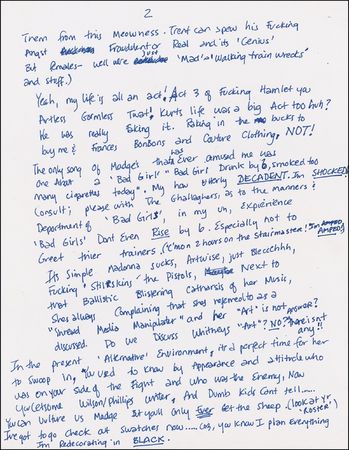 2
Them from this Meowness. Trent can spew his Fucking
Angst Fraudulent or Real and its 'Genius'
But Females - well were just 'Mad' a 'Walking train wrecks'
and stuff.)
Yeah, my life is all an act! Act 3 of Fucking Hamlet you
Artless Gormless Twat! Kurts life was a big Act too huh?
He was really faking it. Raking in the bucks to
buy me & Frances BonBons and Couture Clothing, NOT!
The only song of Madges that Ever amused me was
one about a 'Bad Girl' "Bad Girl was Drunk by 6, smoked too
many cigarettes today". My how utterly DECADENT. I'm SHOCKED
Consult; please with The Ghallaghers, as to the manners &
Department of 'Bad Girls', in my un, experience
'Bad Girls' Dont Even Rise by 6. Especially not to
Greet thier trainers (C'mon 2 hours on the Stairmaster! I'm AMPED!)
Its Simple Madonna sucks, Artwise, just Bleccchhh,
Fucking 'the Pistols, Next to
that Ballistic Blistering catharsis of her Music,
She always Complaining that shes referred to as a
"Shrewd Media Manipulater" and her "Art" is not
discussed. Do we Discuss Whitneys "Art"? NO? there isn't
any!!
In the present 'Alternative' Environment, its a perfect time for her
to Swoop in, You used to know by Appearance and attitude who
was on your side of the Fight and who was the Enemy, Now
Wilson/Phillips Writer, And Dumb kids Cant tell.....
You can Vulture us Madge But youll only Ever Get the Sheep. (look at yr
'ROSTER')
Ive got to go check out swatches now..... cos, you know I plan Everything
I'm Redecorating in BLACK.